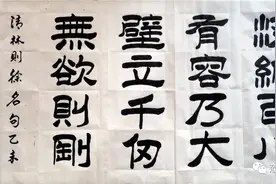 海納百川
有容乃大
壁立千仞
無欲則剛
清林則徐名句乙未